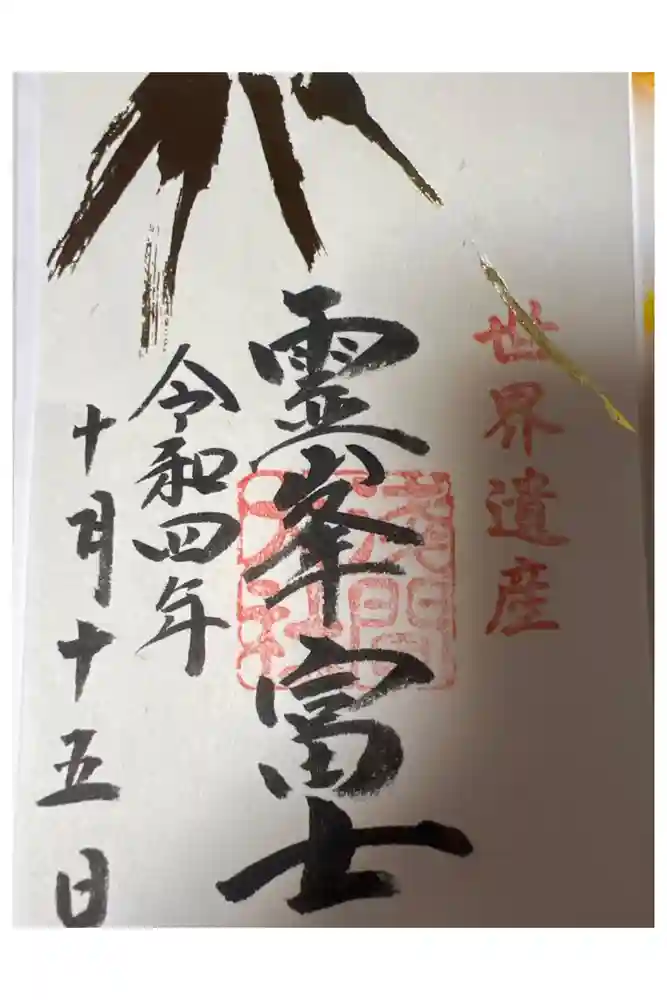 世界遺産
霊峯富士
浅間大社
令和四年
十月十五日